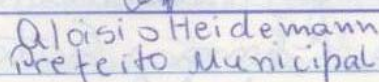 Aloisio Heidemann
Prefeito Municipal